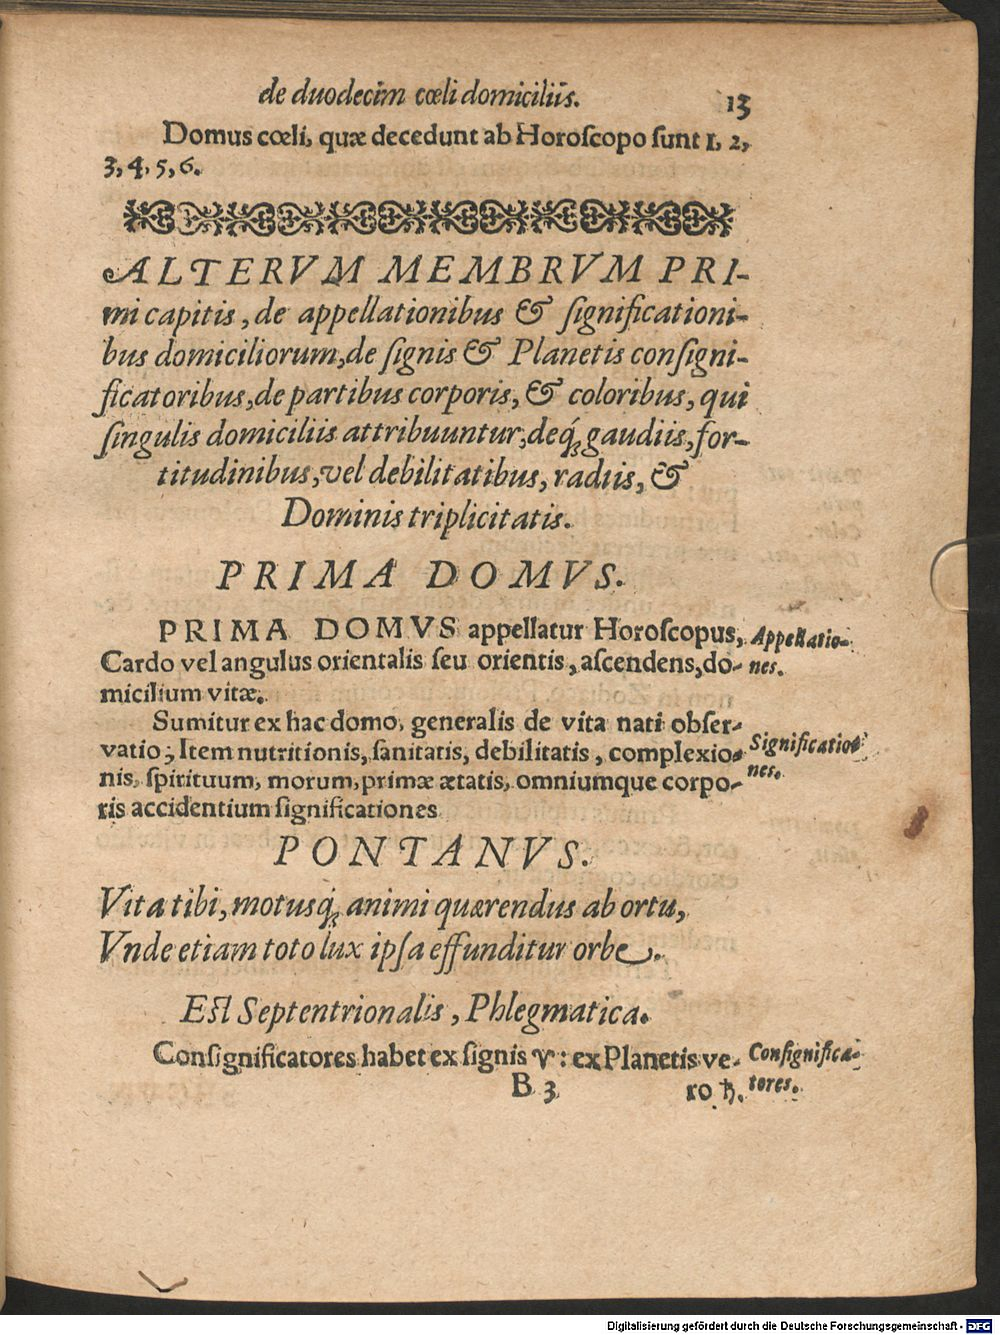 de duodecim cœli domiciliis. 13
Domus cœli, quæ decedunt ab Horoſcopo ſunt 1, 2,
3, 4, 5, 6.
ALTERVM MEMBRVM PRI-
mi capitis, de appellationibus & ſignificationi-
bus domiciliorum, de ſignis & Planetis conſigni-
ficatoribus, de partibus corporis, & coloribus, qui
ſingulis domiciliis attribuuntur, deq́; gaudiis, for-
titudinibus, vel debilitatibus, radiis, &
Dominis triplicitatis.
PRIMA DOMVS.
PRIMA DOMVS appellatur Horoſcopus,
Appellatio-
Cardo vel angulus orientalis ſeu orientis, aſcendens, do-
nes.
micilium vitæ.
Sumitur ex hac domo, generalis de vita nati obſer-
vatio; Item nutritionis, ſanitatis, debilitatis, complexio-
Significatio-
nis, ſpirituum, morum, primæ ætatis, omniumque corpo-
nes.
ris accidentium ſignificationes
PONTANVS.
Vita tibi, motusq́; animi quærendus ab ortu,
Vnde etiam toto lux ipſa effunditur orbe.
Eſt Septentrionalis, Phlegmatica.
Conſignificatores habet ex ſignis ♈: ex Planetis ve-
Conſignifica-
B 3 ro ♄.
tores.
Digitalisierung gefördert durch die Deutsche Forschungsgemeinschaft - DFG